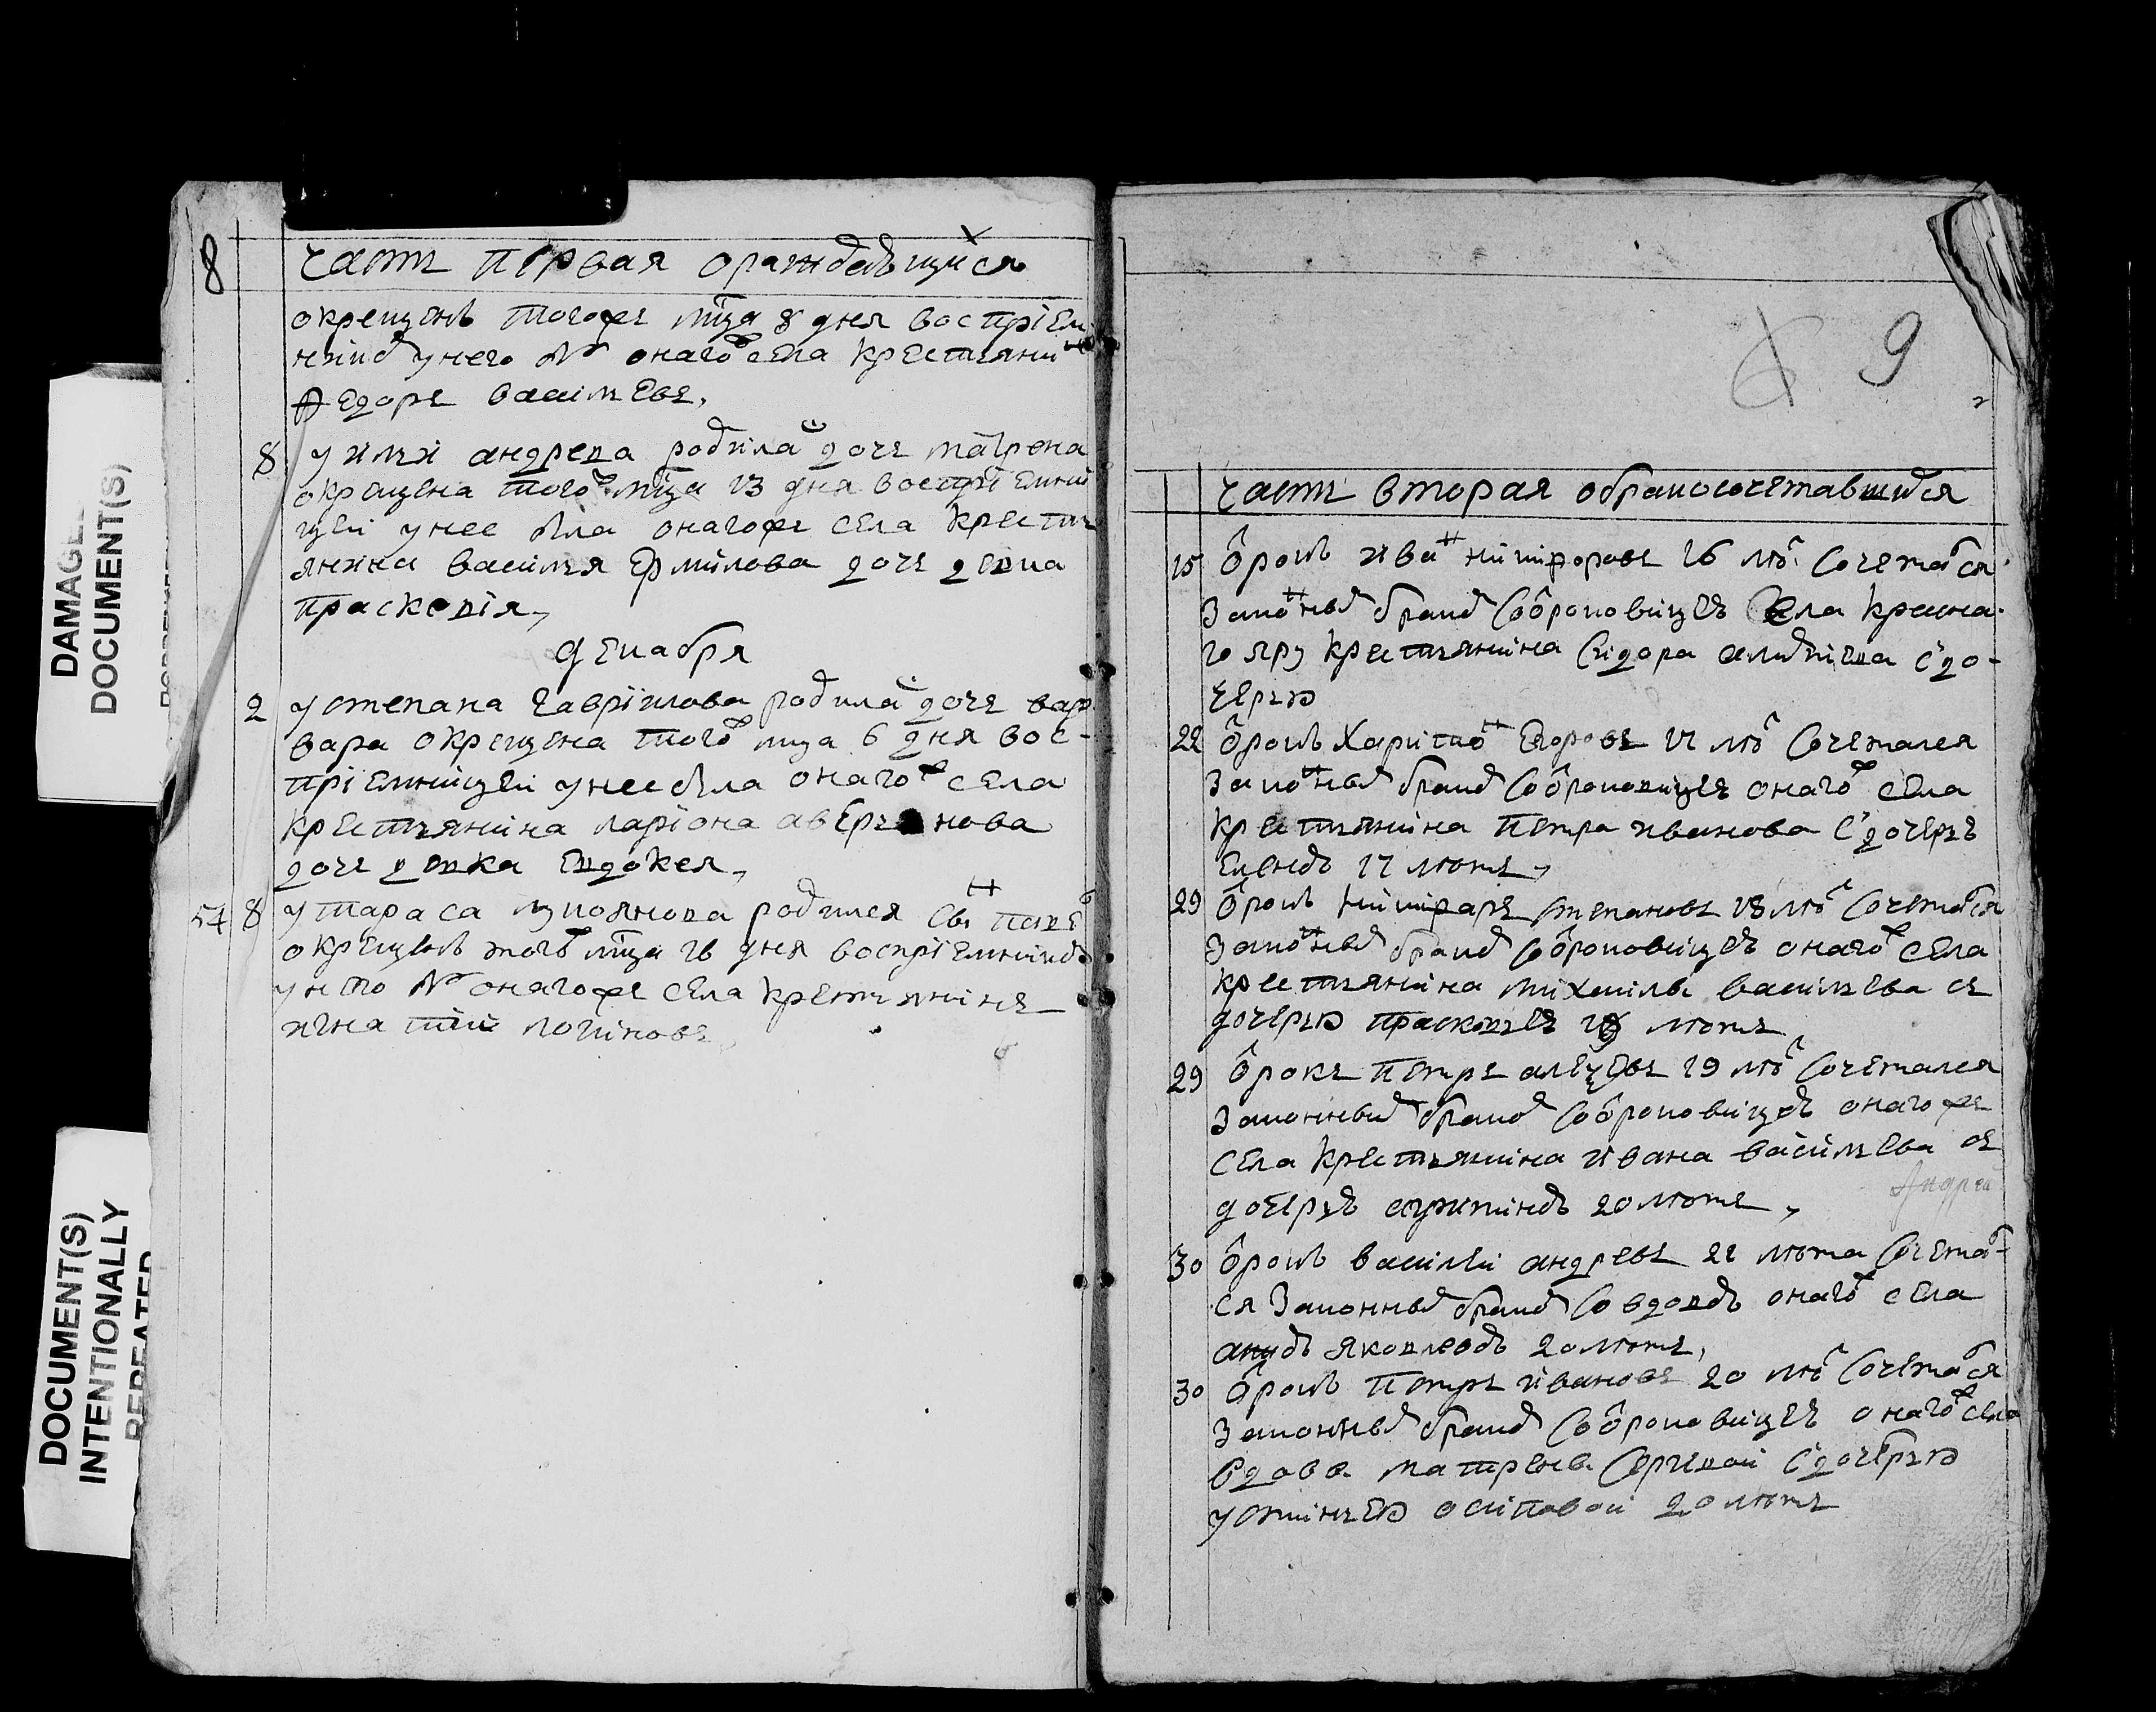 DAMAGED
DOCUMENT(S)
DOCUMENT(S)
INTENTIONALLY
REPEATED
8
часть первая ораждаѣшихся
окрещенъ тогоже мца 8 дня воспріем
никомъ у него былъ онагоже села крестьянинъ
Федоръ васильевъ,
8 у ильи андреева родилась дочь матрена
окрещена тогоже мца 13 дня воспріемни
цеи у нее была онагоже села крестъ
янина василья Ермилова дочь девка
прасковія,
декабря
2 у степана гаврилова родилась дочь вар
вара окрещена тогоже мца 6 дня вос-
пріемницеи у нее была онагоже села
крестьянина ларіона аверьянова
дочь девка Евдокея,
54 8 у тараса лукоянова родился сынъ
окрещенъ тогоже мца 16 дня воспріемникомъ
у него былъ онагоже села крестьянинъ
логиновъ
9
часть вторая обракосочетавшихся
15 отрокъ иванъ никифоровъ 16 лѣтъ сочетался
законнымъ бракомъ сотроковицею села красна
го яру крестьянина сидора с до-
черью
22 отрокъ харитонъ Егоровъ 17 лѣтъ сочетался
законнымъ бракомъ сотроковицею онагоже села
крестьянина петра иванова с дочерью
Еленою 17 лѣтъ,
29 отрокъ никифаръ степановъ 18 лѣтъ сочетался
законнымъ бракомъ сотроковицею онагоже села
крестьянина михаила васильева съ
дочерью прасковьею лѣтъ,
29 отрокъ петръ 19 лѣтъ сочетался
законнымъ бракомъ сотроковицею онагоже
села крестьянина ивана васильева съ
Андреи
дочерью 20 лѣтъ,
30 отрокъ василеи андревъ 22 лѣта сочетал-
ся законнымъ бракомъ со вдовою онагоже села
анною яковлевою 20 лѣтъ,
30 отрокъ петръ ивановъ 20 лѣтъ сочетался
законнымъ бракомъ сотроковицею онагоже села
вдовы матрены с дочерью
устиньею осиповой 20 лѣтъ